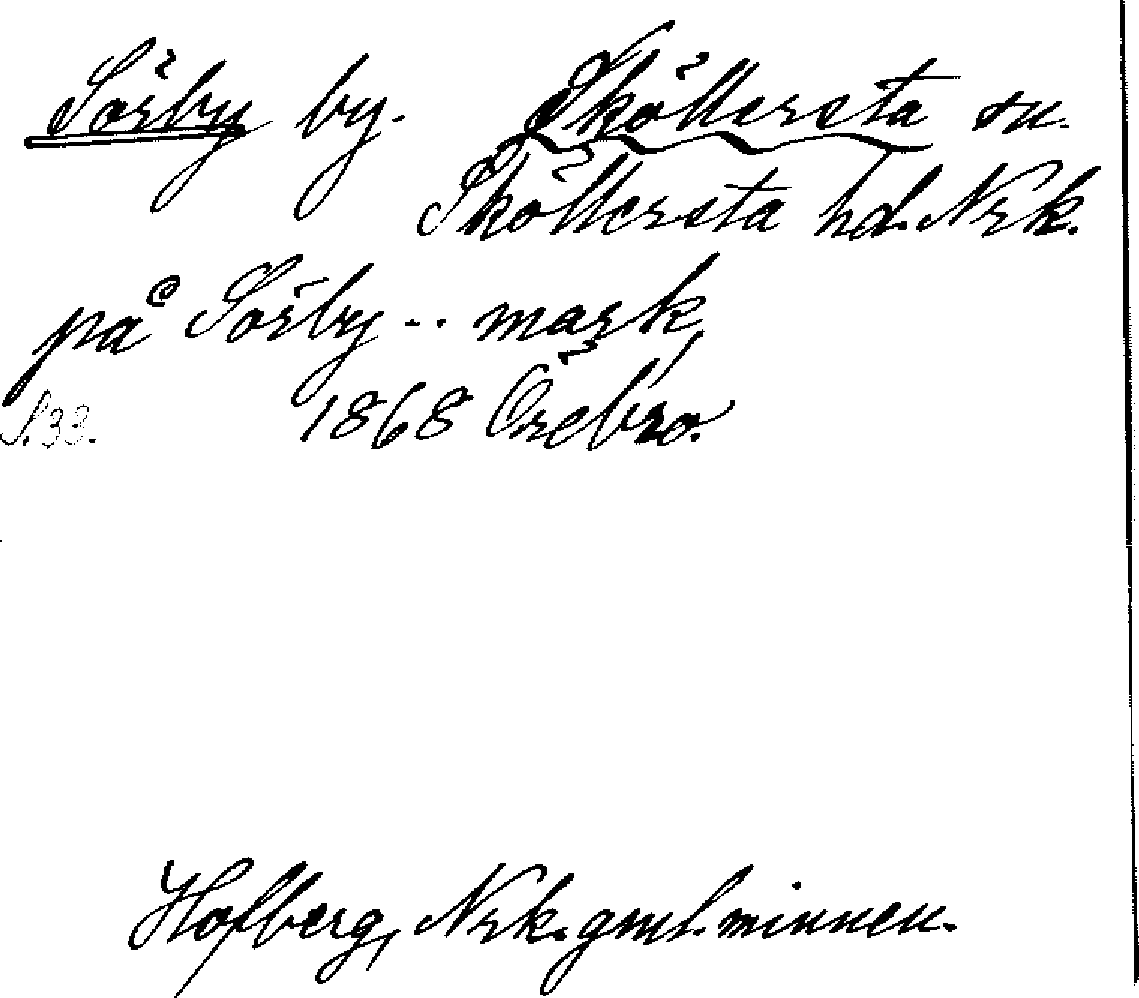 Sörby by. Sköllersta sn.
Sköllersta hd. Nrk.
på Sörby -- mark
S. 33. 1868 Örebro.
Hofberg, Nrk. gml. minnen.